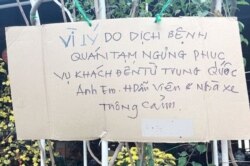 VÌ LÝ DO DỊCH BỆNH
QUÁN TẠM NGỪNG PHỤC
VỤ KHÁCH ĐẾN TỪ TRUNG QUỐC
Anh Em. HDẪN Viên & Nhà xe
Thông cảm.